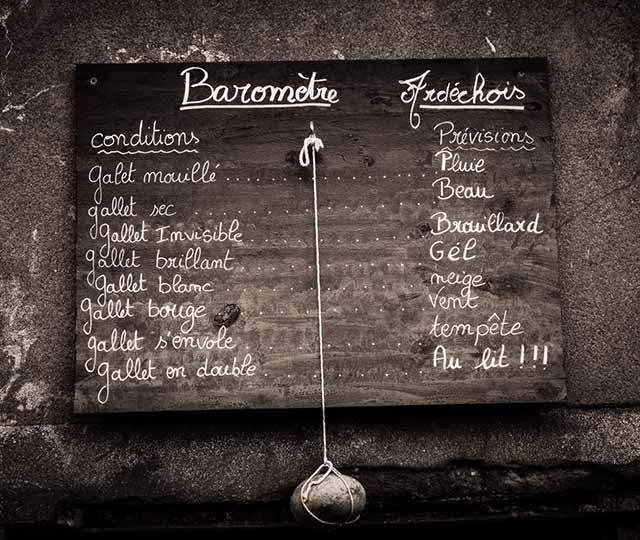 Baromètre Ardéchois
conditions Prévisions
galet mouillé ........ Pluie
gallet sec ........ Beau
gallet Invisible ........ Brouillard
gallet brillant ........ Gél
gallet blanc ........ neige
gallet bouge ........ Vent
gallet s'envole ........ tempête
gallet en double ........ Au lit !!!